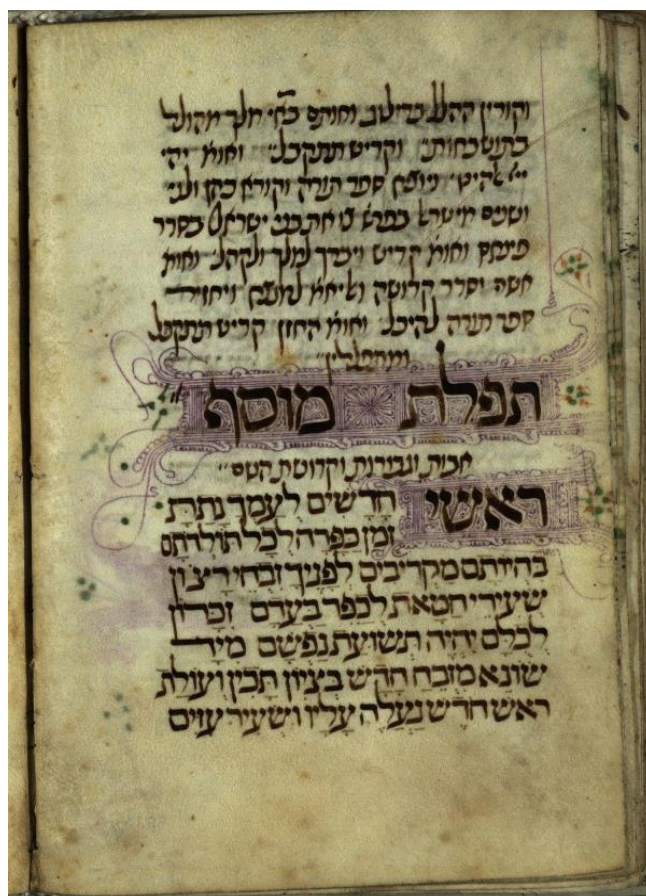 וקורין ההלל בדילוג וחותם בא״י מלך מהולל
בתשבחות׳ וקדיש תתקבל׳ ואומ׳ יהי
ייי׳ אלהינו׳ ומוציא ספר תורה וקורא כהן ולוי
ושנים מישראל בפרש׳ צו את בני ישראל בסדר
פינחס ואומ׳ קדיש ויברך למלך ולקהל׳ ואומ׳
אשרי וסדר קדושה
ספר תורה להיכל׳ ואומ׳ החזן קדיש תתקבל
ומתפללין׳
תפלת מוסף
אבות וגבורות וקדושת השם׳
ראשי חדשים לעמך נתת
זמן כפרה לכל תולדתם
בהיותם מקריבים לפניך זבחי רצון
שעירי חטאת לכפר בעדם זכרון
לכלם יהיה תשועת נפשם מיד
שונא מזבח חדש בציון תכין ועולת
ראש חדש נעלה עליו ושעיר עזים